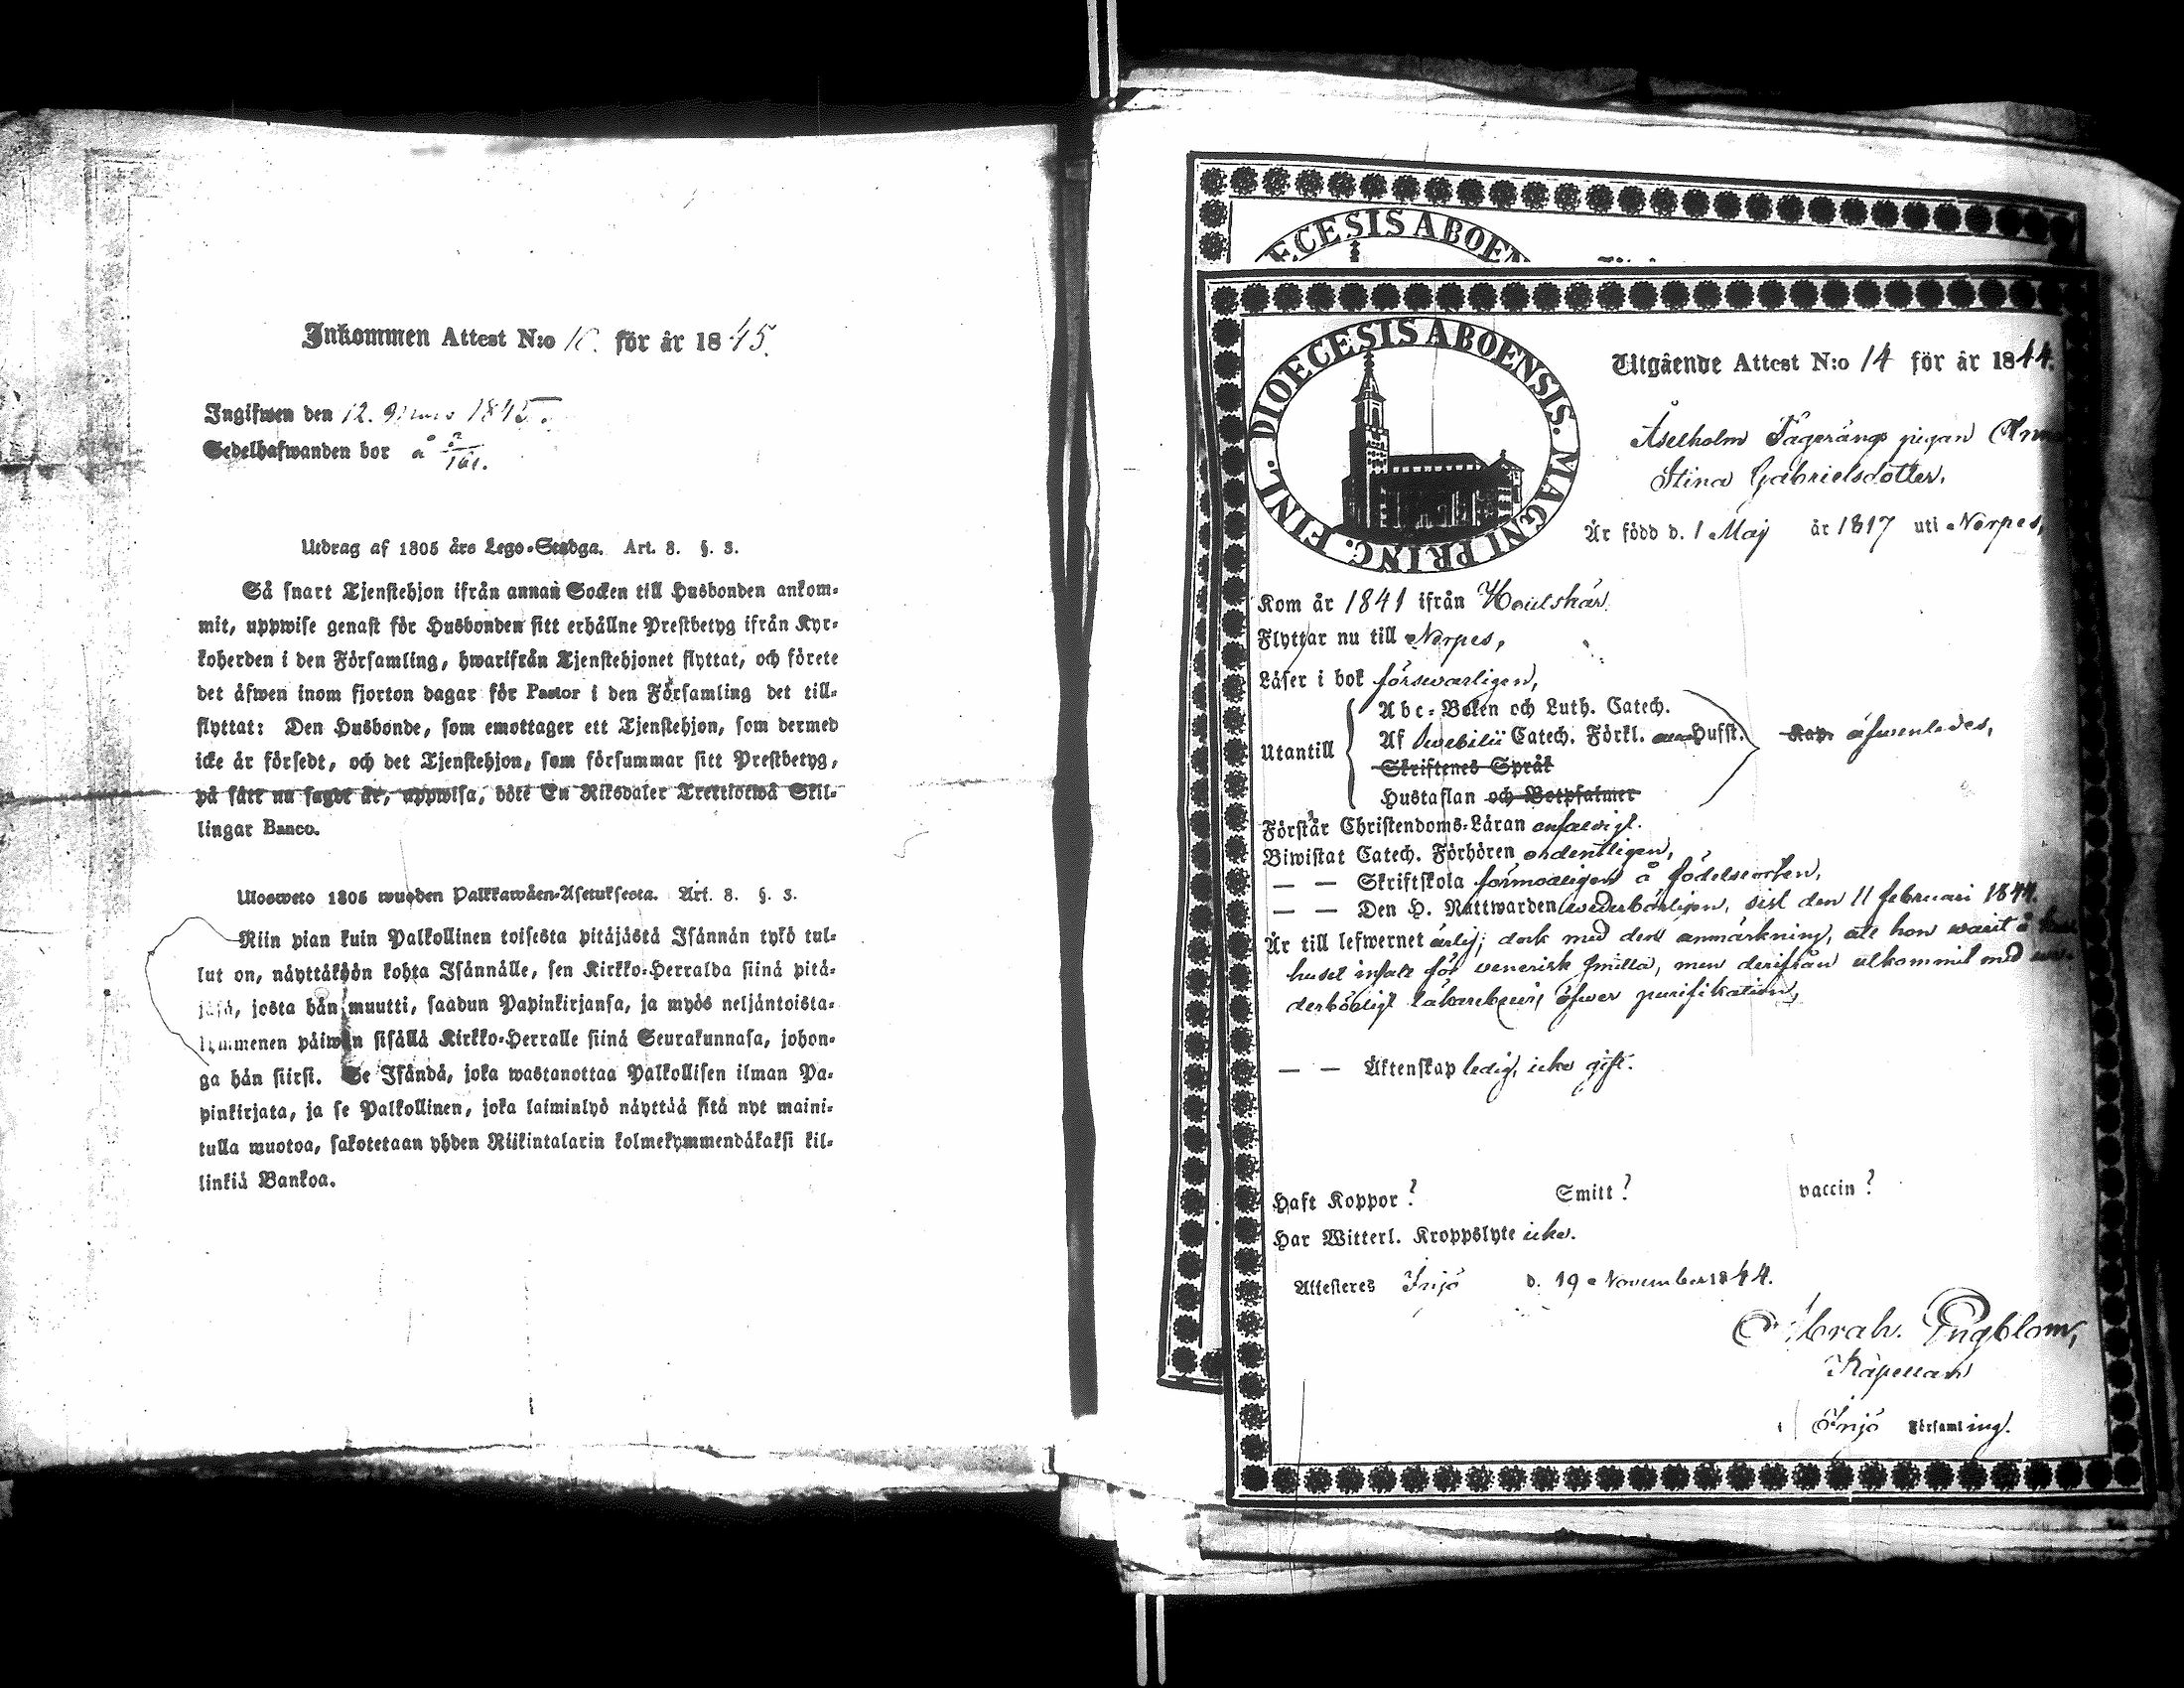 Inkommen Attest N:o 10. för år 1845.
Ingifwen den 12. Mars 1845.
Sedelhafwanden bor å
Utdrag af 1805 års Lego-Stadga. Art. 8. §. 3.
Så snart Tjenstehjon ifrån annan Socken till Husbonden ankom-
mit, uppwise genast för Husbonden sitt erhållne Prestbetyg ifrån Kyr-
koherden i den Församling, hwarifrån Tjenstehjonet flyttat, och förete
det äfwen inom fjorton dagar för Pastor i den Församling det till-
flyttat: Den Husbonde, som emottager ett Tjenstehjon, som dermed
icke är försedt, och det Tjenstehjon, som försummar sitt Prestbetyg,
på sätt nu sagdt är, uppwisa, böte En Riksdaler Trettiotwå Skil-
lingar Banco.
Ulosweto 1805 wuoden Palkkawäen-Asetuksesta. Art. 8. §. 3.
Niin pian kuin Palkollinen toisesta pitäjästä Isännän tykö tul-
lut on, näyttäköön kohta Isännälle, sen Kirkko-Herralda siinä pitä-
jäsä, josta hän muutti, saadun Papinkirjansa, ja myös neljäntoista-
kymmenen päiwän sisällä Kirkko-Herralle siinä Seurakunnasa, johon-
ga hän siirsi. Se Isändä, joka wastanottaa Palkollisen ilman Pa-
pinkirjata, ja se Palkollinen, joka laiminlyö näyttää sitä nyt maini-
tulla muotoa, sakotetaan yhden Riikintalarin kolmekymmendäkaksi kil-
linkiä Bankoa.
ECESIS ABOEN
DIOECESIS ABOENSIS. MAGNI PRINC. FINL.
Utgående Attest N:o 14 för år 1844.
Åselholm Fagerängs pigan Anna
Stina Gabrielsdotter,
Är född d. 1 Maj år 1817 uti Nerpes,
Kom år 1841 ifrån Houtskär
Flyttar nu till Nerpes,
Läser i bok förswarligen,
Utantill
Abc-Boken och Luth. Catech.
Af Swebilii Catech. Förkl. Hufst. äfwenledes,
Skriftenes Språk
Hustaflan och Botpsalmer
Förstår Christendoms-Läran enfaldigt.
Biwistat Catech. Förhören ordentligen,
— — Skriftskola förmodligen å födelseorten,
— — Den H. Nattwarden wederbörligen, sist den 11 februari 1844.
Är till lefwernet ärlig; dock med den anmärkning, att hon warit å
huset intagen för venerisk smitta, men derifrån utkommit med we-
derbörligt läkarebewis öfwer purifikation,
— — Äktenskap ledig, icke gift.
Haft Koppor? Smitt? vaccin?
Har Witterl. Kroppslyte icke.
Attesteres Iniö d. 19 November 1844.
Abrah. Engblom,
Kapellan
i Iniö Församling.